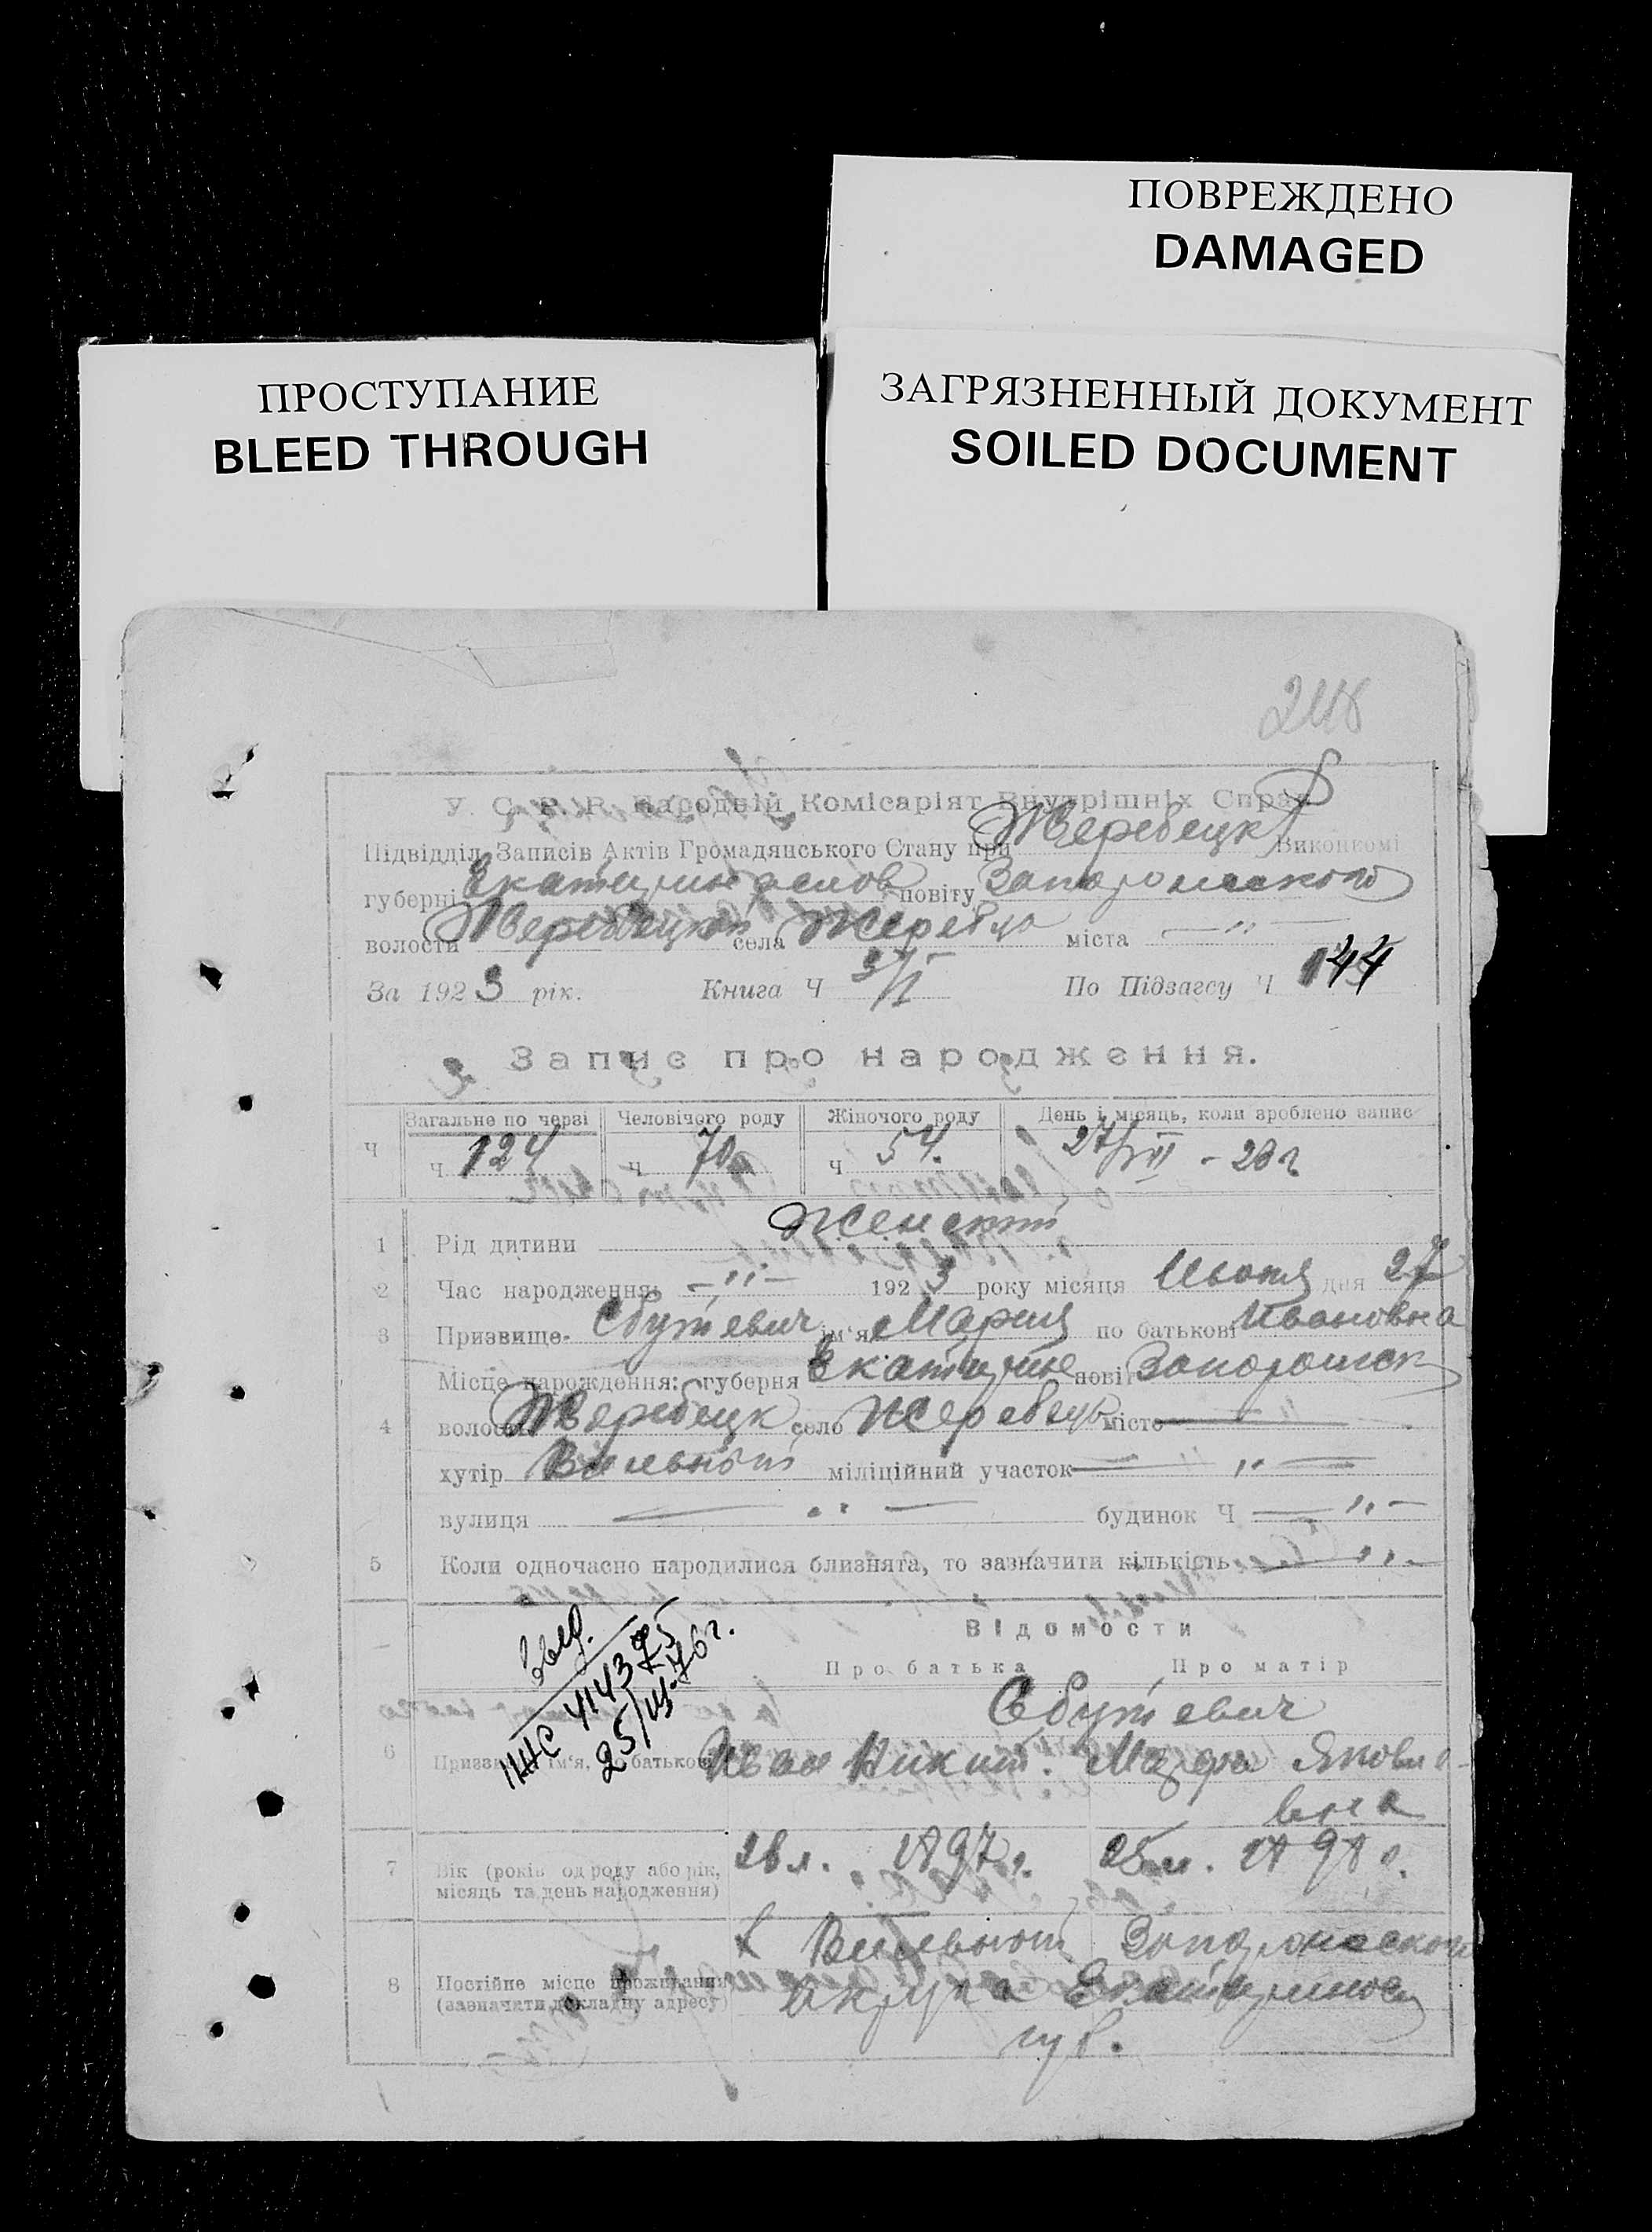 ПОВРЕЖДЕНО
DAMAGED
ПРОСТУПАНИЕ
BLEED THROUGH
ЗАГРЯЗНЕННЫЙ ДОКУМЕНТ
SOILED DOCUMENT
У. С. Р. Р. Народній Комісаріят Внутрішніх Справ
Підвідділ Записів Актів Громадянського Стану при Жеребецк Виконкомі
губерні Екатеринослов повіту Запорожского
волости Жеребецкой села Жеребца міста — " —
За 1923 рік. Книга Ч По Підзагсу Ч 144
Запис про народження.
Загальне по черзі Человічого роду Жіночого роду День і місяць, коли зроблено запис
Ч Ч 124 Ч 70 Ч 54. 27/VII - 23 г
1 Рід дитини Женский
2 Час народження: — " — 1923 року місяця Июля дня 27
3 Призвище Сбутевич ім'я Мария по батькові Ивановна
Місце народження: губерня Екатерино повіт Запорожск
4 волость Жеребецк село Жеребець місто — " —
хутір Вильной міліційний участок — " —
вулиця — " — будинок Ч — " —
5 Коли одночасно народилися близнята, то зазначити кількість — " —
Відомости
Про батька Про матір
выд.
ІНС 414375
25/III-76 г.
Сбутевич
6 Призвище, ім'я, по батькові Иван Никит. Мария Яковле-
вна
7 Вік (років од роду або рік, 26 л. 1897 г. 25 л. 1898 г.
місяць та день народження)
х Вильной Запорожского
8 Постійне місце проживання
(зазначити докладну адресу) округа Екатеринос
губ.